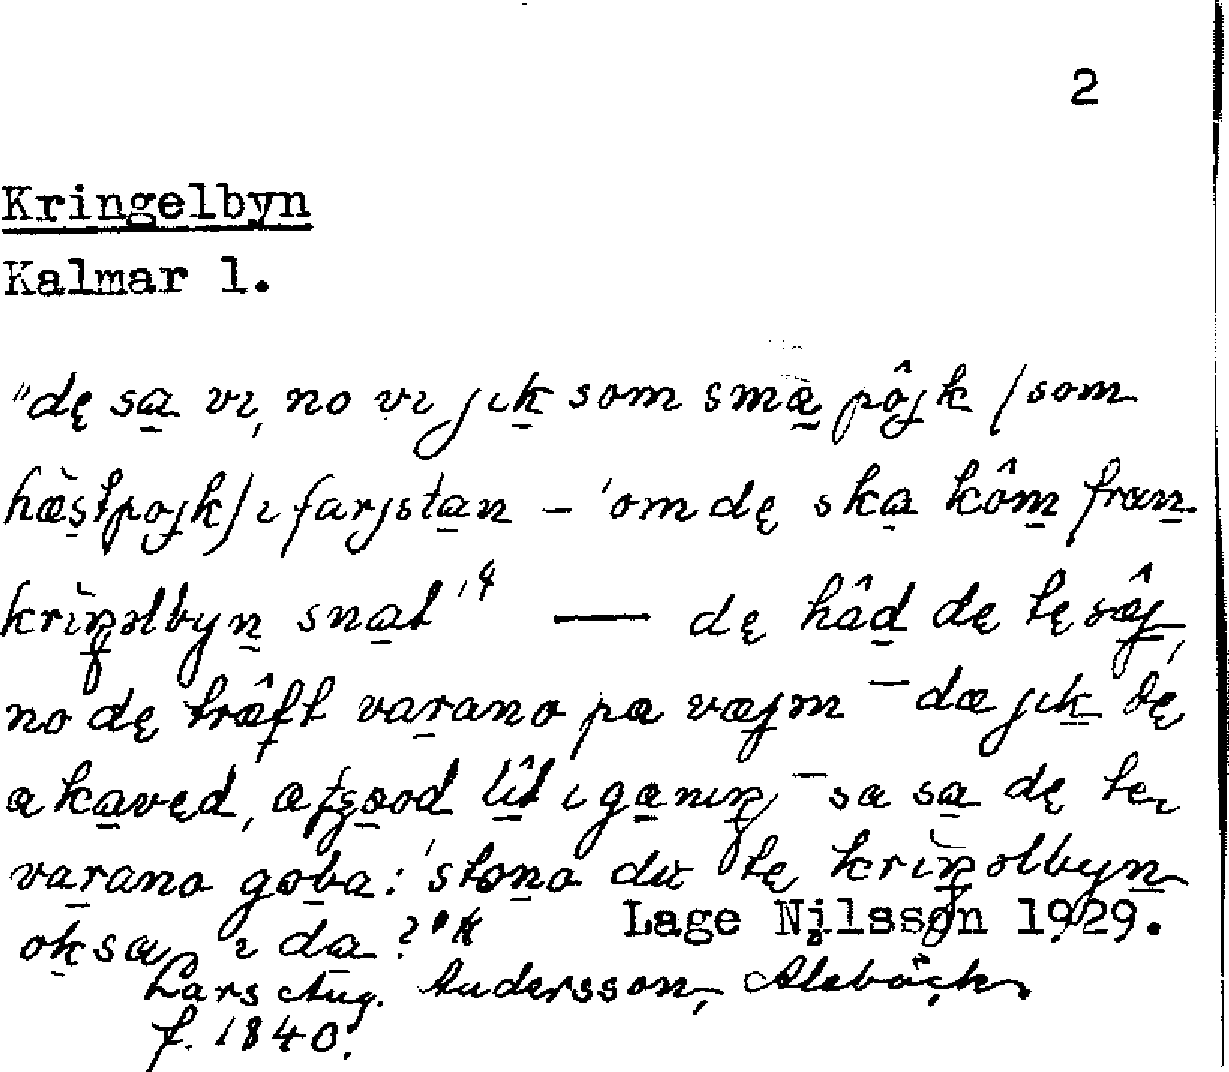 2
Kringelbyn
Kalmar l.
"dę sa vı, no vı jık som små pôjk (som
hæ̀stpojk) ı farjstan – 'om dę ska kôm fran
krìŋəlbyn snat'" — dę hâd dę tę sæ̂j,
no dę trâft varano pa væjm – da jık dę
a kavęd, a god lît ı ganıŋ, – sa sa dę te
varano goba: 'stona du tę krìŋəlbyn
oksa ı da?'"
Lage Nilsson 1929.
Lars Aug. Andersson, Alebäck,
f. 1840.